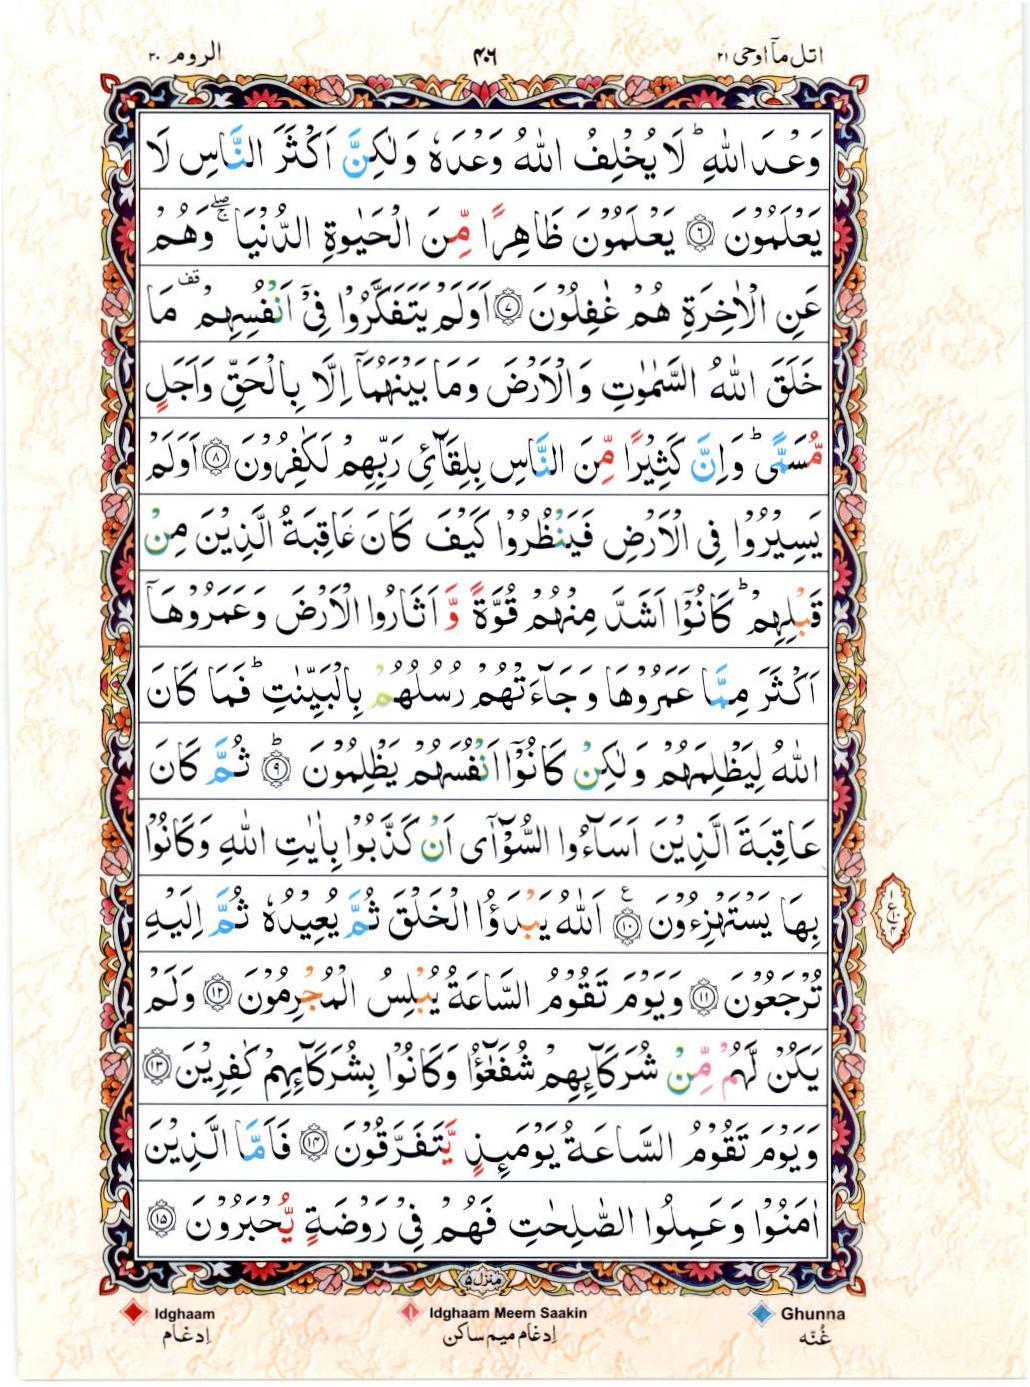 اتل مآ اوحی ۲۱
۴۰۶
الروم ۳۰
وَعْدَ اللّٰهِ ؕ لَا يُخْلِفُ اللّٰهُ وَعْدَهٗ وَلٰكِنَّ اَكْثَرَ النَّاسِ لَا
يَعْلَمُوْنَ ۝۶ يَعْلَمُوْنَ ظَاهِرًا مِّنَ الْحَيٰوةِ الدُّنْيَا ۚۖ وَهُمْ
عَنِ الْاٰخِرَةِ هُمْ غٰفِلُوْنَ ۝۷ اَوَلَمْ يَتَفَكَّرُوْا فِیْۤ اَنْفُسِهِمْ قف مَا
خَلَقَ اللّٰهُ السَّمٰوٰتِ وَالْاَرْضَ وَمَا بَيْنَهُمَاۤ اِلَّا بِالْحَقِّ وَاَجَلٍ
مُّسَمًّی ؕ وَاِنَّ كَثِيْرًا مِّنَ النَّاسِ بِلِقَآئِ رَبِّهِمْ لَكٰفِرُوْنَ ۝۸ اَوَلَمْ
يَسِيْرُوْا فِی الْاَرْضِ فَيَنْظُرُوْا كَيْفَ كَانَ عَاقِبَةُ الَّذِيْنَ مِنْ
قَبْلِهِمْ ؕ كَانُوْۤا اَشَدَّ مِنْهُمْ قُوَّةً وَّ اَثَارُوا الْاَرْضَ وَعَمَرُوْهَاۤ
اَكْثَرَ مِمَّا عَمَرُوْهَا وَجَآءَتْهُمْ رُسُلُهُمْ بِالْبَيِّنٰتِ ؕ فَمَا كَانَ
اللّٰهُ لِيَظْلِمَهُمْ وَلٰكِنْ كَانُوْۤا اَنْفُسَهُمْ يَظْلِمُوْنَ ؕ۝۹ ثُمَّ كَانَ
عَاقِبَةَ الَّذِيْنَ اَسَآءُوا السُّوْٓاٰی اَنْ كَذَّبُوْا بِاٰيٰتِ اللّٰهِ وَكَانُوْا
بِهَا يَسْتَهْزِءُوْنَ ۝۱۰ ع اَللّٰهُ يَبْدَؤُا الْخَلْقَ ثُمَّ يُعِيْدُهٗ ثُمَّ اِلَيْهِ
تُرْجَعُوْنَ ۝۱۱ وَيَوْمَ تَقُوْمُ السَّاعَةُ يُبْلِسُ الْمُجْرِمُوْنَ ۝۱۲ وَلَمْ
يَكُنْ لَّهُمْ مِّنْ شُرَكَآئِهِمْ شُفَعٰٓؤُا وَكَانُوْا بِشُرَكَآئِهِمْ كٰفِرِيْنَ ۝۱۳
وَيَوْمَ تَقُوْمُ السَّاعَةُ يَوْمَئِذٍ يَّتَفَرَّقُوْنَ ۝۱۴ فَاَمَّا الَّذِيْنَ
اٰمَنُوْا وَعَمِلُوا الصّٰلِحٰتِ فَهُمْ فِیْ رَوْضَةٍ يُّحْبَرُوْنَ ۝۱۵
منزل ۵
Idghaam Idghaam Meem Saakin Ghunna
اِدغام اِدغام میم ساکن غُنّه